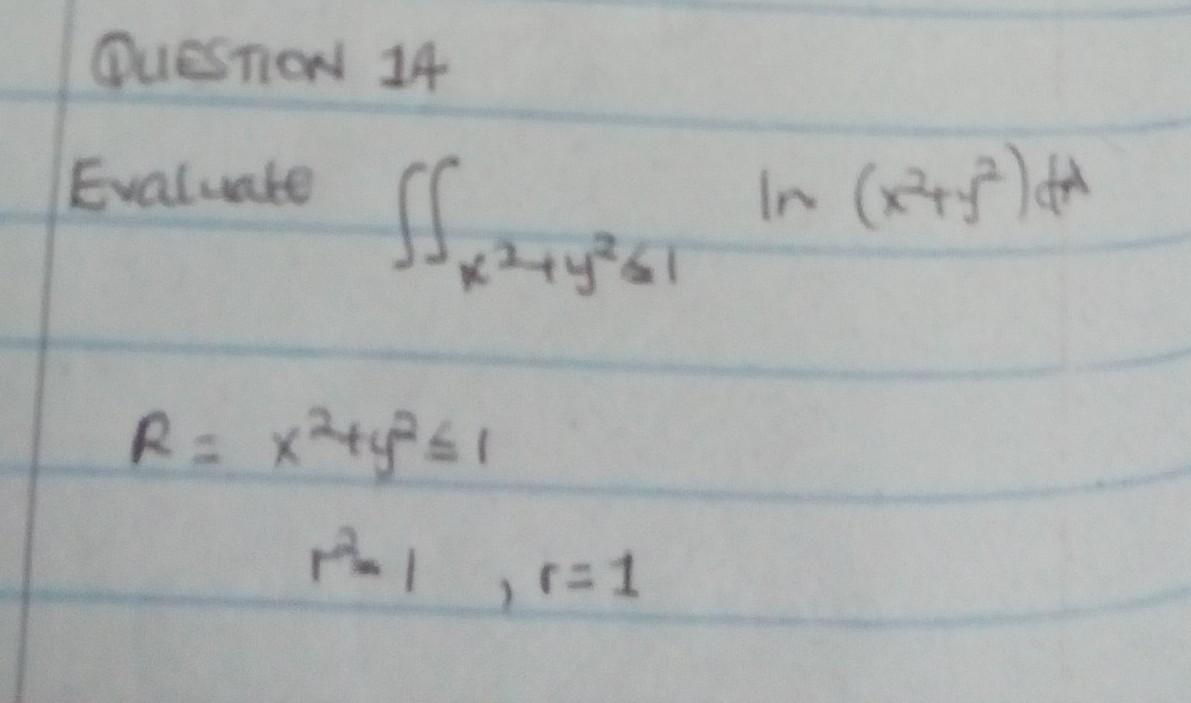 QUESTION 14
Evaluate ∬ₓ²₊ᵧ²≤₁ ln (x²+y²) dA
R = x²+y² ≤ 1
r² = 1 , r = 1